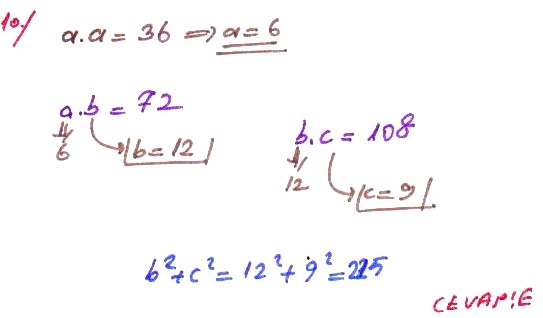 10./
a.a = 36 ⇒ a = 6
a.b = 72
6
b = 12
b.c = 108
12
c = 9
b²+c² = 12²+9² = 225
CEVAP:E